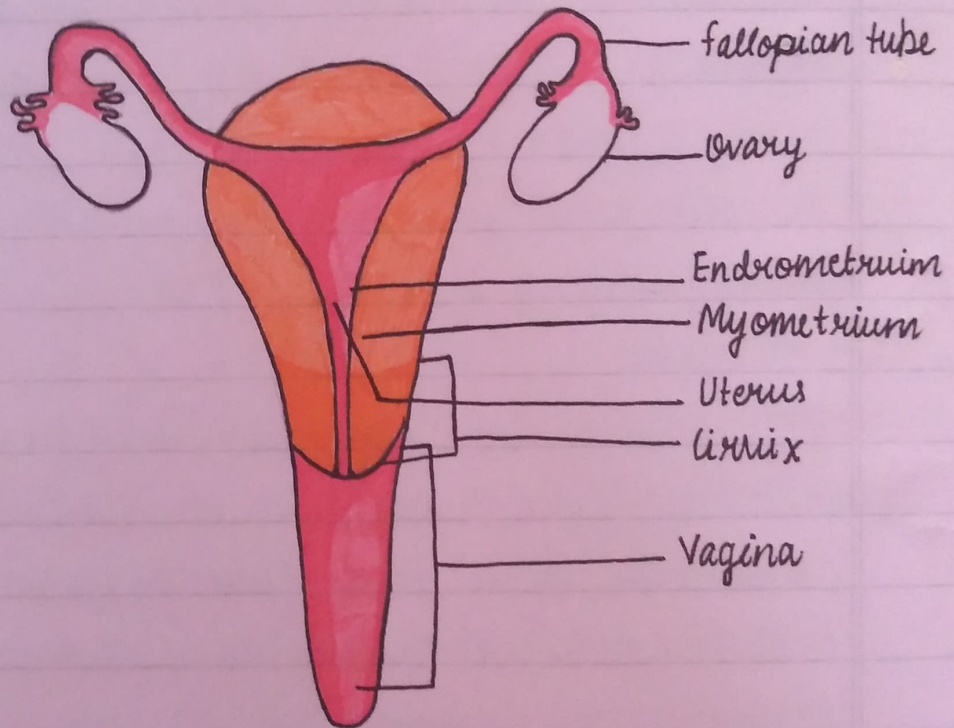 fallopian tube
Ovary
Endrometruim
Myometrium
Uterus
Cirvix
Vagina